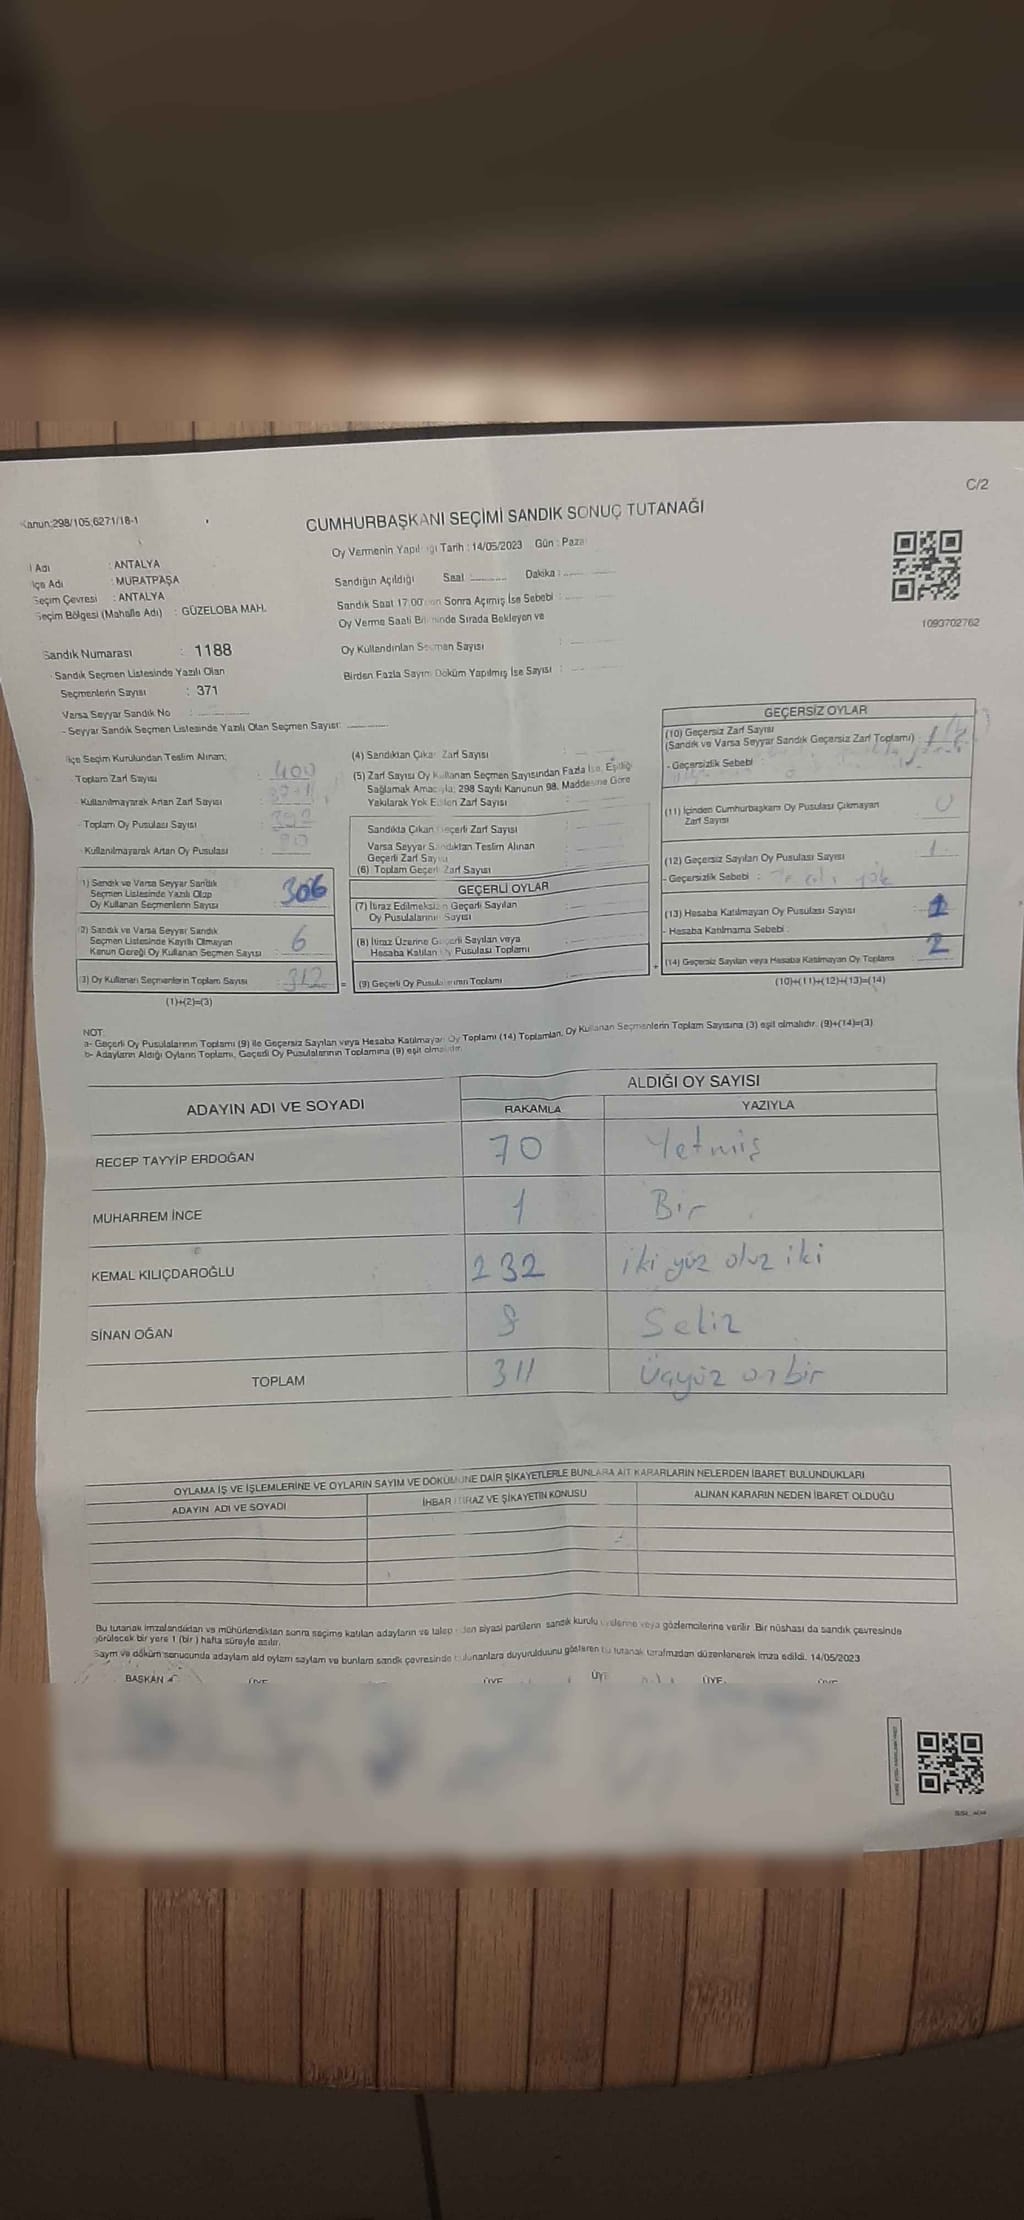 C/2
Kanun:298/105,6271/18-1
CUMHURBAŞKANI SEÇİMİ SANDIK SONUÇ TUTANAĞI
Oy Vermenin Yapıldığı Tarih : 14/05/2023 Gün : Pazar
İl Adı : ANTALYA
İlçe Adı : MURATPAŞA
Seçim Çevresi : ANTALYA
Seçim Bölgesi (Mahalle Adı) : GÜZELOBA MAH.
Sandığın Açıldığı Saat Dakika :
Sandık Saat 17:00'den Sonra Açımış İse Sebebi :
Oy Verme Saati Bitiminde Sırada Bekleyen ve
Oy Kullandırılan Seçmen Sayısı :
Birden Fazla Sayım Döküm Yapılmış İse Sayısı :
1093702762
Sandık Numarası : 1188
- Sandık Seçmen Listesinde Yazılı Olan
Seçmenlerin Sayısı : 371
Varsa Seyyar Sandık No :
- Seyyar Sandık Seçmen Listesinde Yazılı Olan Seçmen Sayısı:
İlçe Seçim Kurulundan Teslim Alınan;
- Toplam Zarf Sayısı : 400
- Kullanılmayarak Artan Zarf Sayısı :
- Toplam Oy Pusulası Sayısı :
- Kullanılmayarak Artan Oy Pusulası :
1) Sandık ve Varsa Seyyar Sandık
Seçmen Listesinde Yazılı Olup
Oy Kullanan Seçmenlerin Sayısı : 306
2) Sandık ve Varsa Seyyar Sandık
Seçmen Listesinde Kayıtlı Olmayan
Kanun Gereği Oy Kullanan Seçmen Sayısı : 6
(3) Oy Kullanan Seçmenlerin Toplam Sayısı : 312 =
(1)+(2)=(3)
(4) Sandıktan Çıkan Zarf Sayısı :
(5) Zarf Sayısı Oy Kullanan Seçmen Sayısından Fazla İse, Eşitliği
Sağlamak Amacıyla; 298 Sayılı Kanunun 98. Maddesine Göre
Yakılarak Yok Edilen Zarf Sayısı :
Sandıkta Çıkan Geçerli Zarf Sayısı :
Varsa Seyyar Sandıktan Teslim Alınan
Geçerli Zarf Sayısı :
(6) Toplam Geçerli Zarf Sayısı :
GEÇERLİ OYLAR
(7) İtiraz Edilmeksizin Geçerli Sayılan
Oy Pusulalarının Sayısı :
(8) İtiraz Üzerine Geçerli Sayılan veya
Hesaba Katılan Oy Pusulası Toplamı :
(9) Geçerli Oy Pusulalarının Toplamı : +
GEÇERSİZ OYLAR
(10) Geçersiz Zarf Sayısı
(Sandık ve Varsa Seyyar Sandık Geçersiz Zarf Toplamı) :
- Geçersizlik Sebebi :
(11) İçinden Cumhurbaşkanı Oy Pusulası Çıkmayan
Zarf Sayısı : 0
(12) Geçersiz Sayılan Oy Pusulası Sayısı : 1
- Geçersizlik Sebebi : yok
(13) Hesaba Katılmayan Oy Pusulası Sayısı : 1
- Hesaba Katılmama Sebebi :
(14) Geçersiz Sayılan veya Hesaba Katılmayan Oy Toplamı : 2
(10)+(11)+(12)+(13)=(14)
NOT:
a- Geçerli Oy Pusulalarının Toplamı (9) ile Geçersiz Sayılan veya Hesaba Katılmayan Oy Toplamı (14) Toplamları, Oy Kullanan Seçmenlerin Toplam Sayısına (3) eşit olmalıdır. (9)+(14)=(3)
b- Adayların Aldığı Oyların Toplamı, Geçerli Oy Pusulalarının Toplamına (9) eşit olmalıdır.
ADAYIN ADI VE SOYADI ALDIĞI OY SAYISI
RAKAMLA YAZIYLA
RECEP TAYYİP ERDOĞAN 70 Yetmiş
MUHARREM İNCE 1 Bir
KEMAL KILIÇDAROĞLU 232 iki yüz otuz iki
SİNAN OĞAN 8 Sekiz
TOPLAM 311 Üçyüz on bir
OYLAMA İŞ VE İŞLEMLERİNE VE OYLARIN SAYIM VE DÖKÜMÜNE DAİR ŞİKAYETLERLE BUNLARA AİT KARARLARIN NELERDEN İBARET BULUNDUKLARI
ADAYIN ADI VE SOYADI İHBAR İTİRAZ VE ŞİKAYETİN KONUSU ALINAN KARARIN NEDEN İBARET OLDUĞU
Bu tutanak imzalandıktan ve mühürlendikten sonra seçime katılan adayların ve talep eden siyasi partilerin sandık kurulu üyelerine veya gözlemcilerine verilir. Bir nüshası da sandık çevresinde
görülecek bir yere 1 (bir) hafta süreyle asılır.
Sayım ve döküm sonucunda adayların ald oyların sayıları ve bunların sandık çevresinde bulunanlara duyurulduunu gösteren bu tutanak tarafımızdan düzenlenerek imza edildi. 14/05/2023
BAŞKAN ÜYE ÜYE ÜYE ÜYE ÜYE